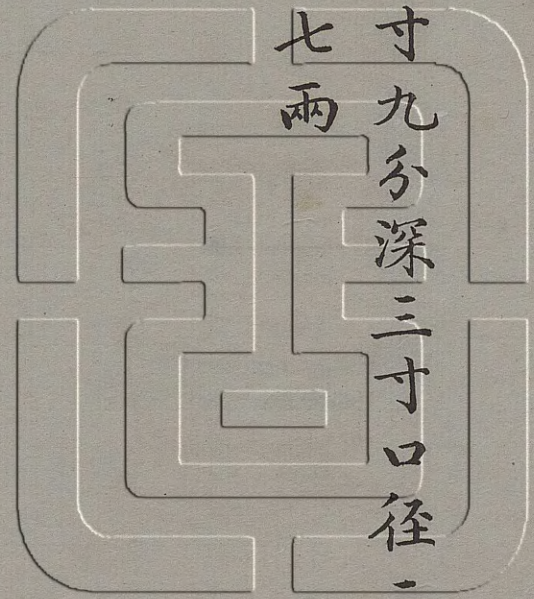 寸九分深三寸口径一
七兩